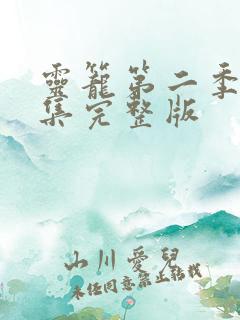 靈籠第二季
集完整版
山川愛兒
未经同意禁止转载